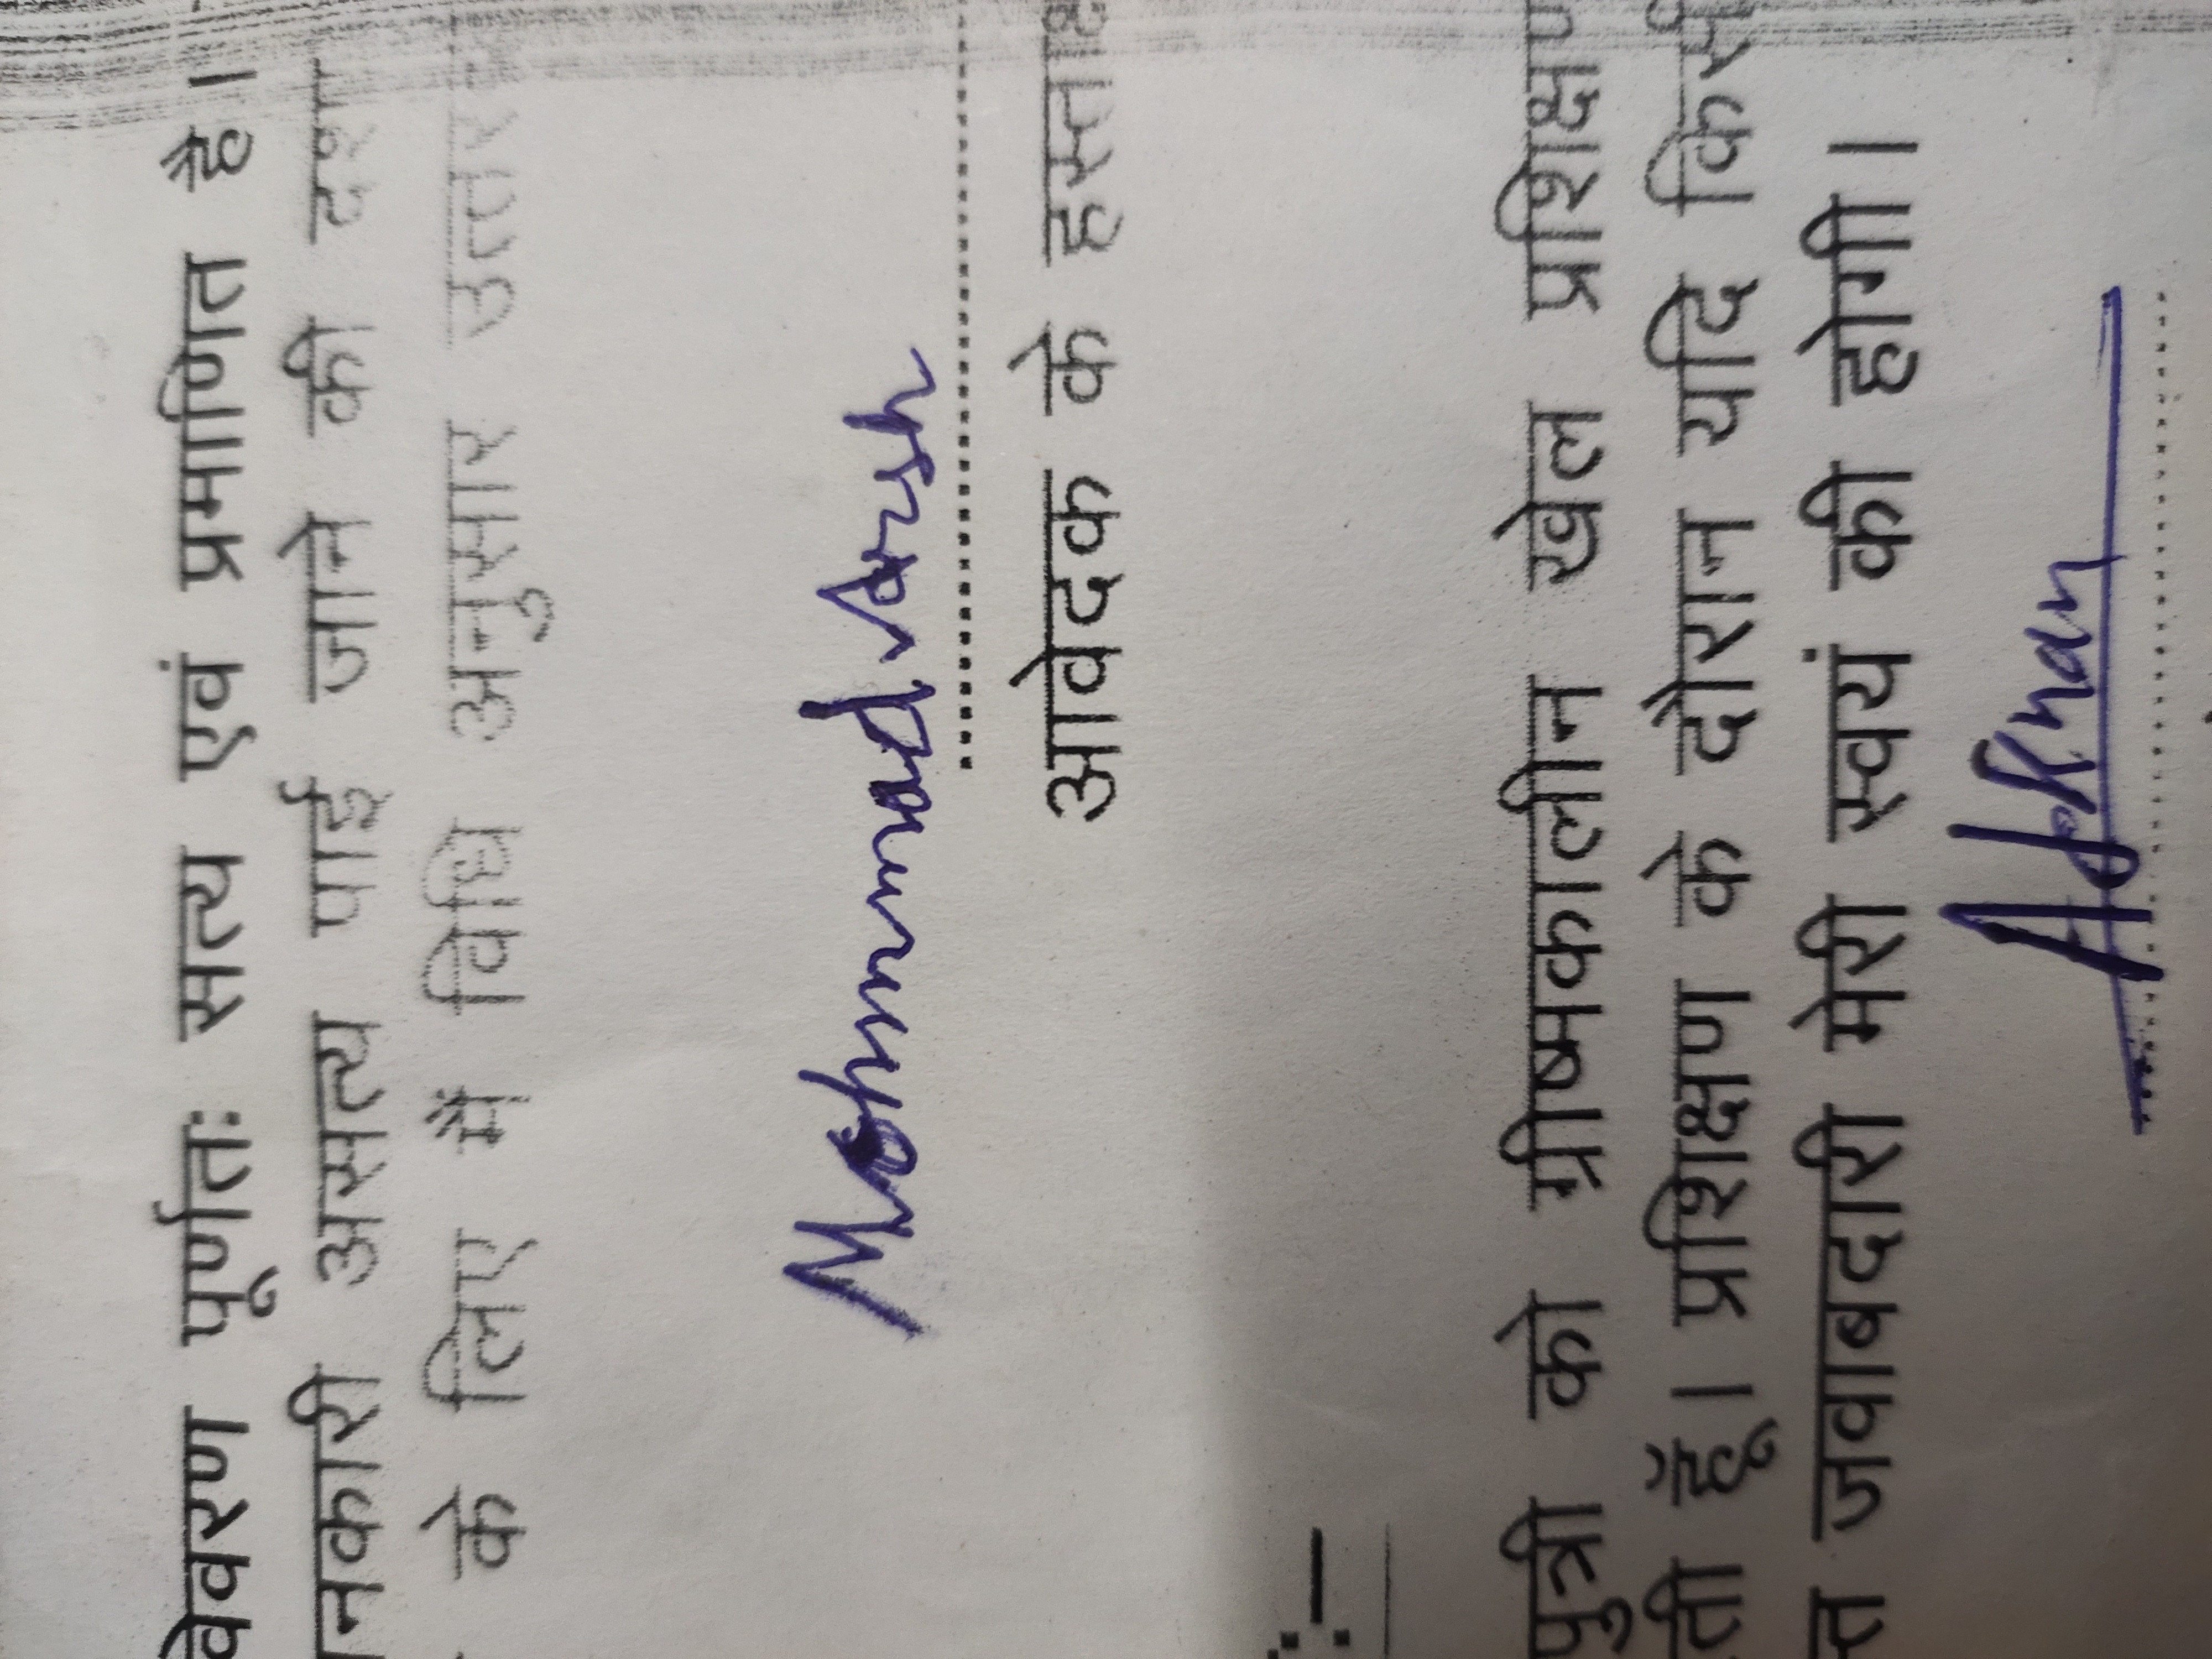 वेवरण पूर्णतः सत्य एवं प्रमाणित है।
नकारी असत्य पाई जाने की दशा
के लिए मैं विधि अनुसार उत्तर
Mohammad Arsh
आवेदक के हस्ताक्ष
:–
पुत्री को ग्रीष्मकालीन खेल प्रशिक्षण
ती हूँ। प्रशिक्षण के दौरान यदि किसी
त जवाबदारी मेरी स्वयं की होगी।